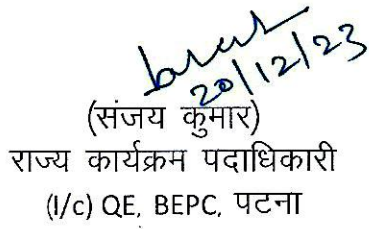 20/12/23
(संजय कुमार)
राज्य कार्यक्रम पदाधिकारी
(I/c) QE, BEPC, पटना